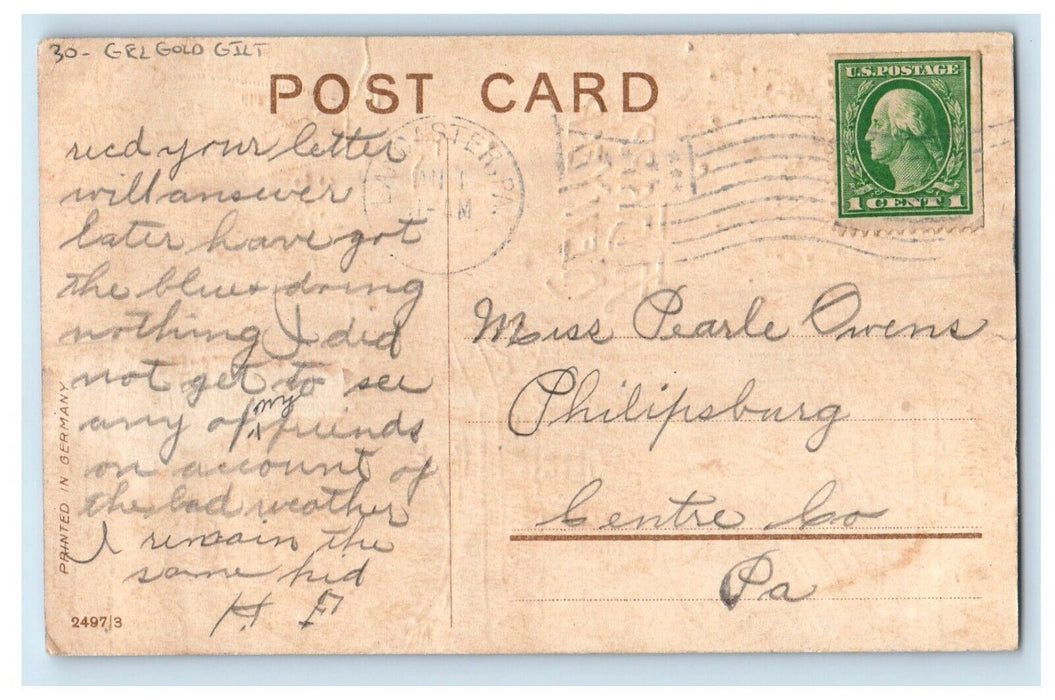 30- GEL GOLD GILT
POST CARD
U.S. POSTAGE
1 CENT 1
LANCASTER, PA.
JAN 1
M
recd your letter
will answer
later have got
the blues doing
nothing I did
not get to see
any of my friends
on account of
the bad weather
I remain the
same kid
H F
Miss Pearle Owens
Philipsburg
Centre Co
Pa
PRINTED IN GERMANY
2497/3